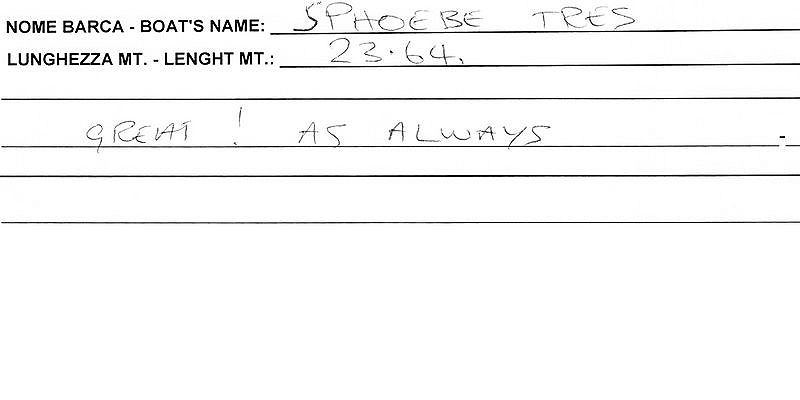 NOME BARCA - BOAT'S NAME: SPHOEBE TRES
LUNGHEZZA MT. - LENGHT MT.: 23.64.
GREAT! AS ALWAYS